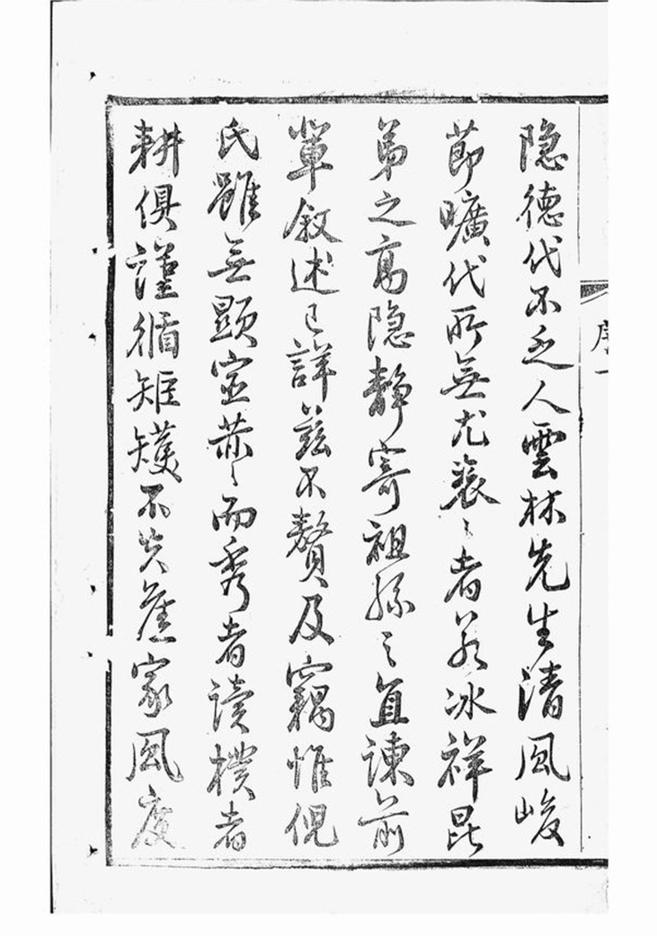 序一
隐德代不乏人雲林先生清風峻
節曠代所無尤衮々者若冰祥昆
弟之高隐靜寄祖孫之直諫前
輩敘述已詳茲不贅及竊惟倪
氏雖無顯宦赫々而秀者讀樸者
耕俱謹循矩矱不失舊家風度